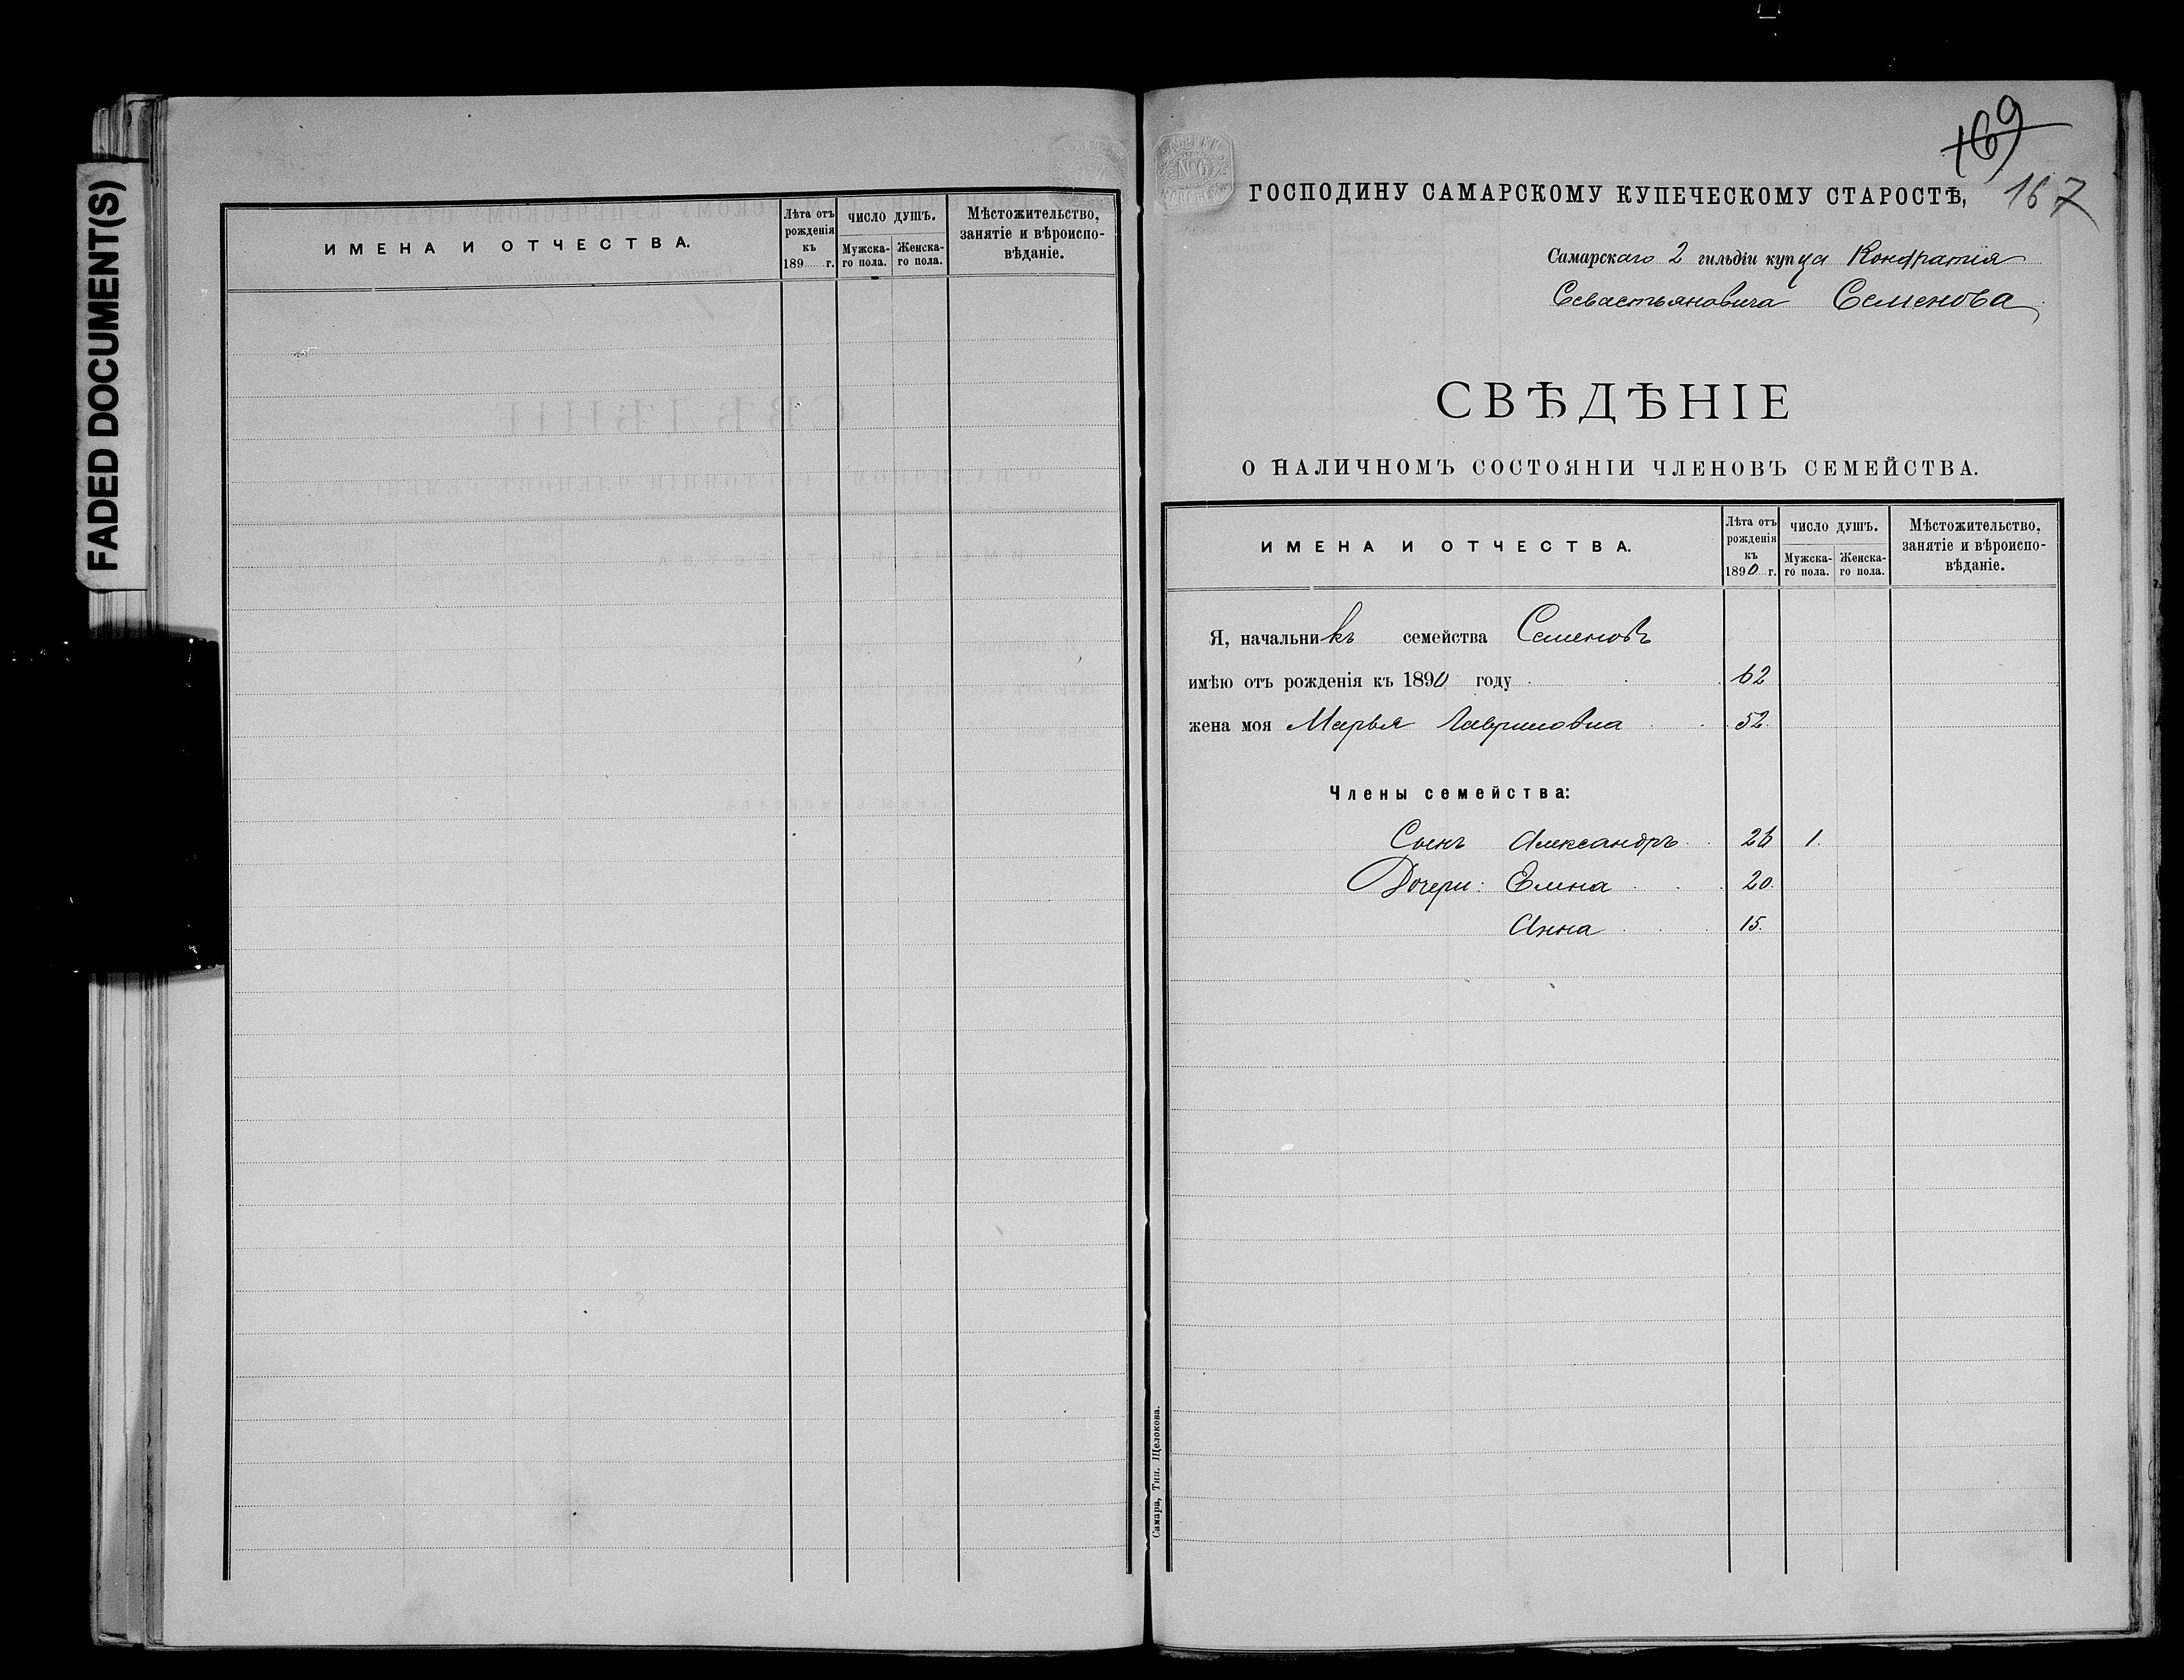 FADED DOCUMENT(S)
ИМЕНА И ОТЧЕСТВА.
Лѣта отъ рожденія къ 189 г.
ЧИСЛО ДУШЪ.
Мужска-го пола.
Женска-го пола.
Мѣстожительство, занятіе и вѣроиспо-вѣданіе.
169
167
№6
ГОСПОДИНУ САМАРСКОМУ КУПЕЧЕСКОМУ СТАРОСТѢ,
Самарскаго 2 гильдіи купца Кондратія
Севастьяновича Семенова
СВѢДѢНІЕ
О НАЛИЧНОМЪ СОСТОЯНІИ ЧЛЕНОВЪ СЕМЕЙСТВА.
ИМЕНА И ОТЧЕСТВА.
Лѣта отъ рожденія къ 1890 г.
ЧИСЛО ДУШЪ.
Мужска-го пола.
Женска-го пола.
Мѣстожительство, занятіе и вѣроиспо-вѣданіе.
Я, начальникъ семейства Семеновъ
имѣю отъ рожденія къ 1890 году 62
жена моя Марья Гавриловна 52.
Члены семейства:
Сынъ Александръ 26 1.
Дочери: Елена 20.
Анна 15.
Самара, Тип. Щелокова.